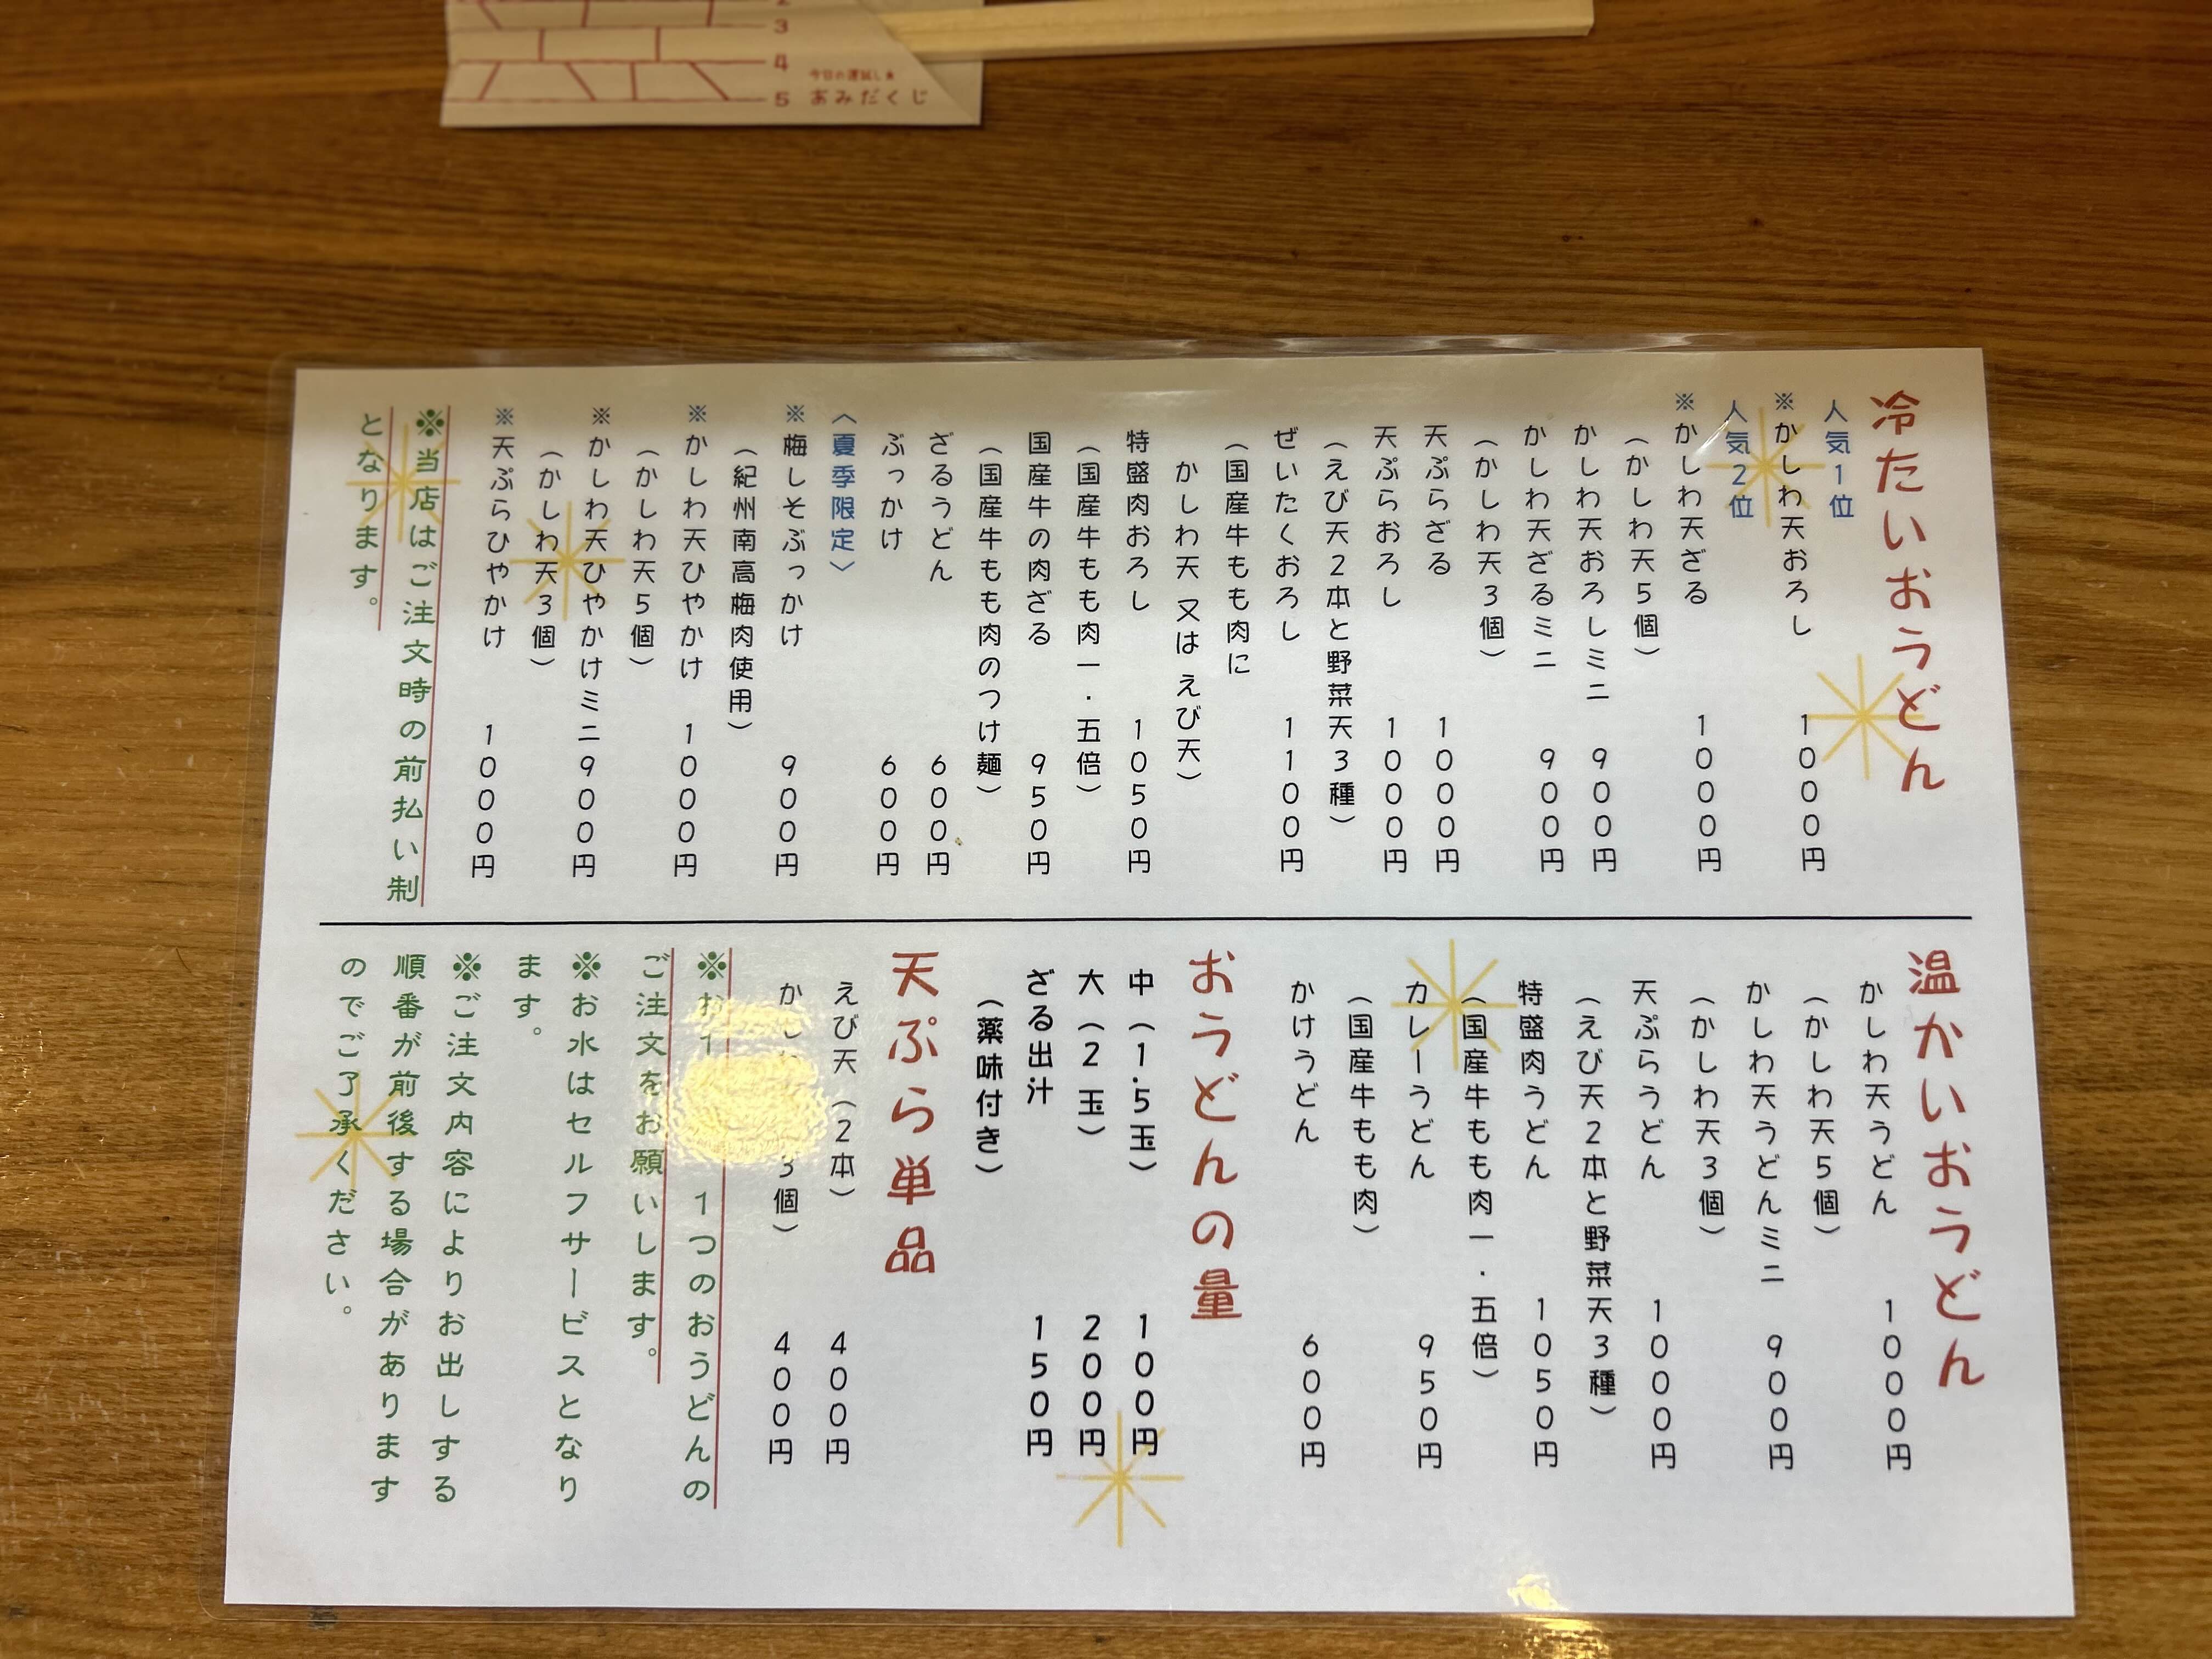 3
4
5
今日の運試し
あみだくじ
冷たいおうどん
人気1位
※かしわ天おろし 1000円
人気2位
※かしわ天ざる 1000円
（かしわ天5個）
かしわ天おろしミニ 900円
かしわ天ざるミニ 900円
（かしわ天3個）
天ぷらざる 1000円
天ぷらおろし 1000円
（えび天2本と野菜天3種）
ぜいたくおろし 1100円
（国産牛もも肉に
かしわ天 又は えび天）
特盛肉おろし 1050円
（国産牛もも肉一．五倍）
国産牛の肉ざる 950円
（国産牛もも肉のつけ麺）
ざるうどん 600円
ぶっかけ 600円
〈夏季限定〉
※梅しそぶっかけ 900円
（紀州南高梅肉使用）
※かしわ天ひやかけ 1000円
（かしわ天5個）
※かしわ天ひやかけミニ900円
（かしわ天3個）
※天ぷらひやかけ 1000円
※当店はご注文時の前払い制
となります。
温かいおうどん
かしわ天うどん 1000円
（かしわ天5個）
かしわ天うどんミニ 900円
（かしわ天3個）
天ぷらうどん 1000円
（えび天2本と野菜天3種）
特盛肉うどん 1050円
（国産牛もも肉一．五倍）
カレーうどん 950円
（国産牛もも肉）
かけうどん 600円
おうどんの量
中（1.5玉） 100円
大（2玉） 200円
ざる出汁 150円
（薬味付き）
天ぷら単品
えび天（2本） 400円
か 3個） 400円
※お1 1つのおうどんの
ご注文をお願いします。
※お水はセルフサービスとなり
ます。
※ご注文内容によりお出しする
順番が前後する場合があります
のでご了承ください。